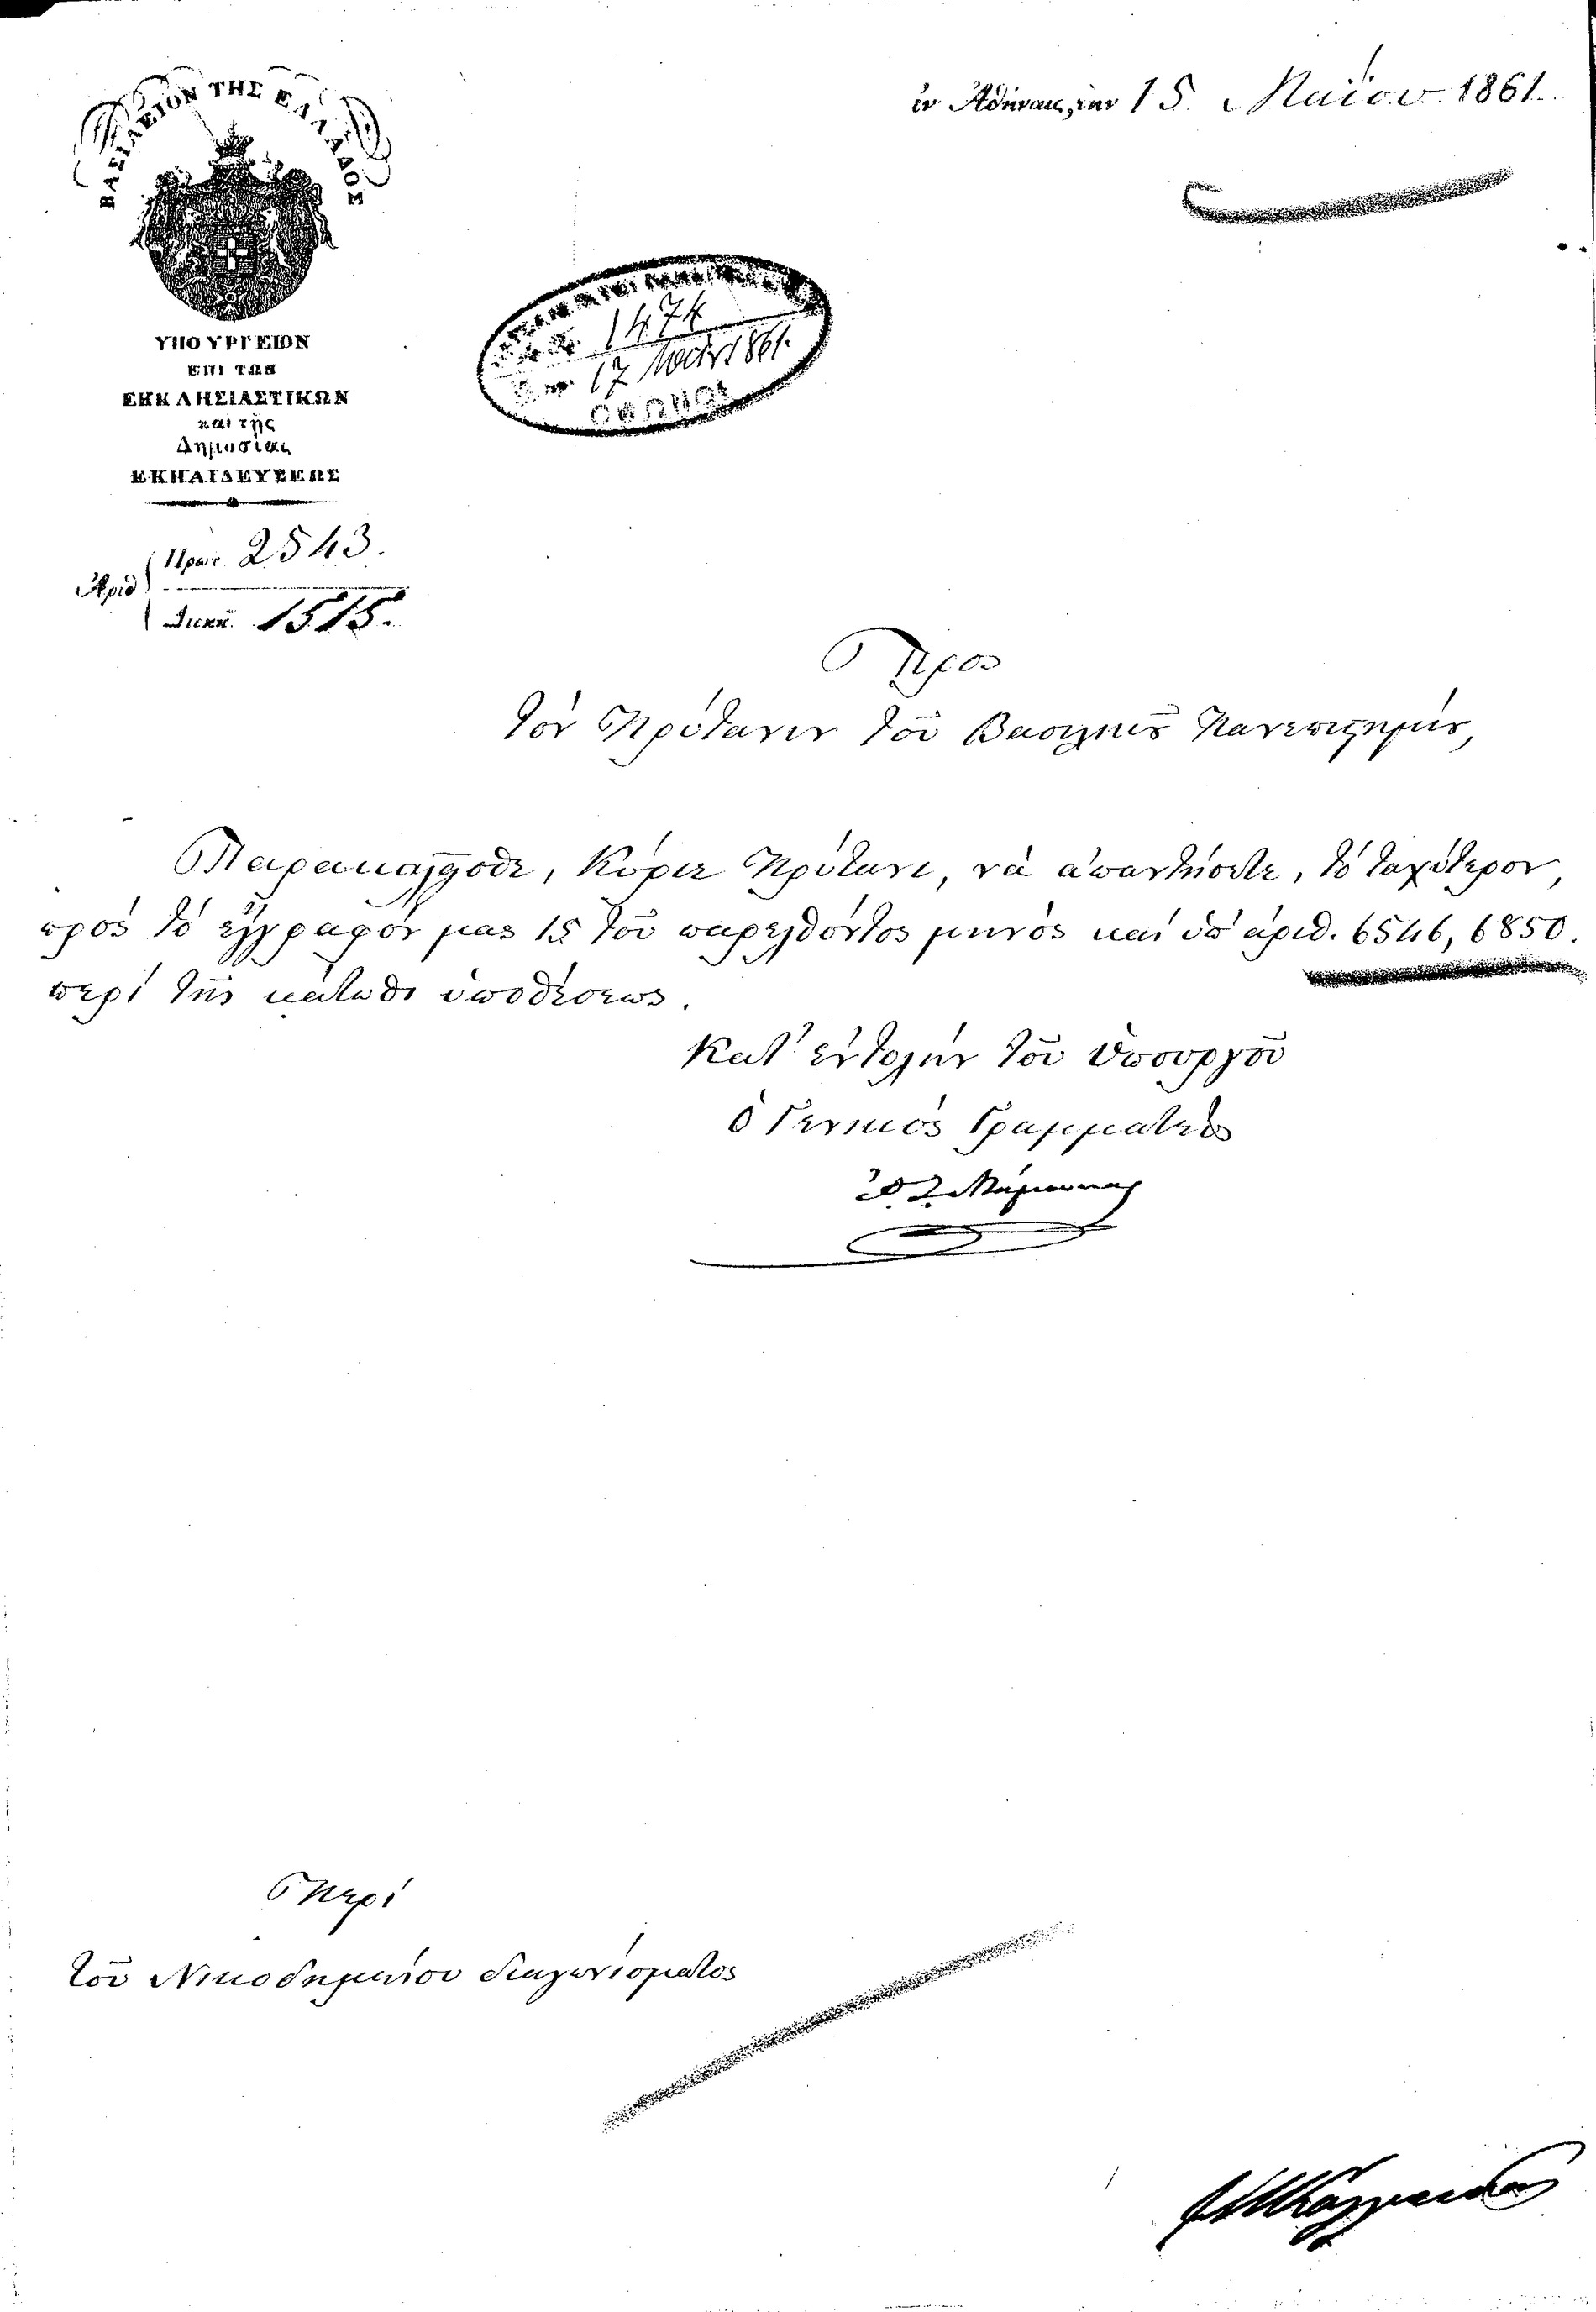 ἐν Ἀθήναις, τὴν 15 Μαΐου 1861.
ΒΑΣΙΛΕΙΟΝ ΤΗΣ ΕΛΛΑΔΟΣ
ΥΠΟΥΡΓΕΙΟΝ
ΕΠΙ ΤΩΝ
ΕΚΚΛΗΣΙΑΣΤΙΚΩΝ
καὶ τῆς
Δημοσίας
ΕΚΠΑΙΔΕΥΣΕΩΣ
1474
17 Μαΐου 1861.
ΟΘΩΝΟΣ
Ἀριθ
Πρωτ. 2543.
Διεκπ. 1515.
Πρὸς
τὸν Πρύτανιν τοῦ Βασιλικοῦ Πανεπιστημίου,
Παρακαλεῖσθε, Κύριε Πρύτανι, νὰ ἀπαντήσετε, τὸ ταχύτερον,
πρὸς τὸ ἔγγραφόν μας 15 τοῦ παρελθόντος μηνὸς καὶ ὑπ' ἀριθ. 6546, 6850.
περὶ τῆς κάτωθι ὑποθέσεως.
Κατ' ἐντολὴν τοῦ Ὑπουργοῦ
ὁ Γενικὸς Γραμματεὺς
Α. Ζ. Μάμουκας
Περὶ
τοῦ Νικοδημείου διαγωνίσματος